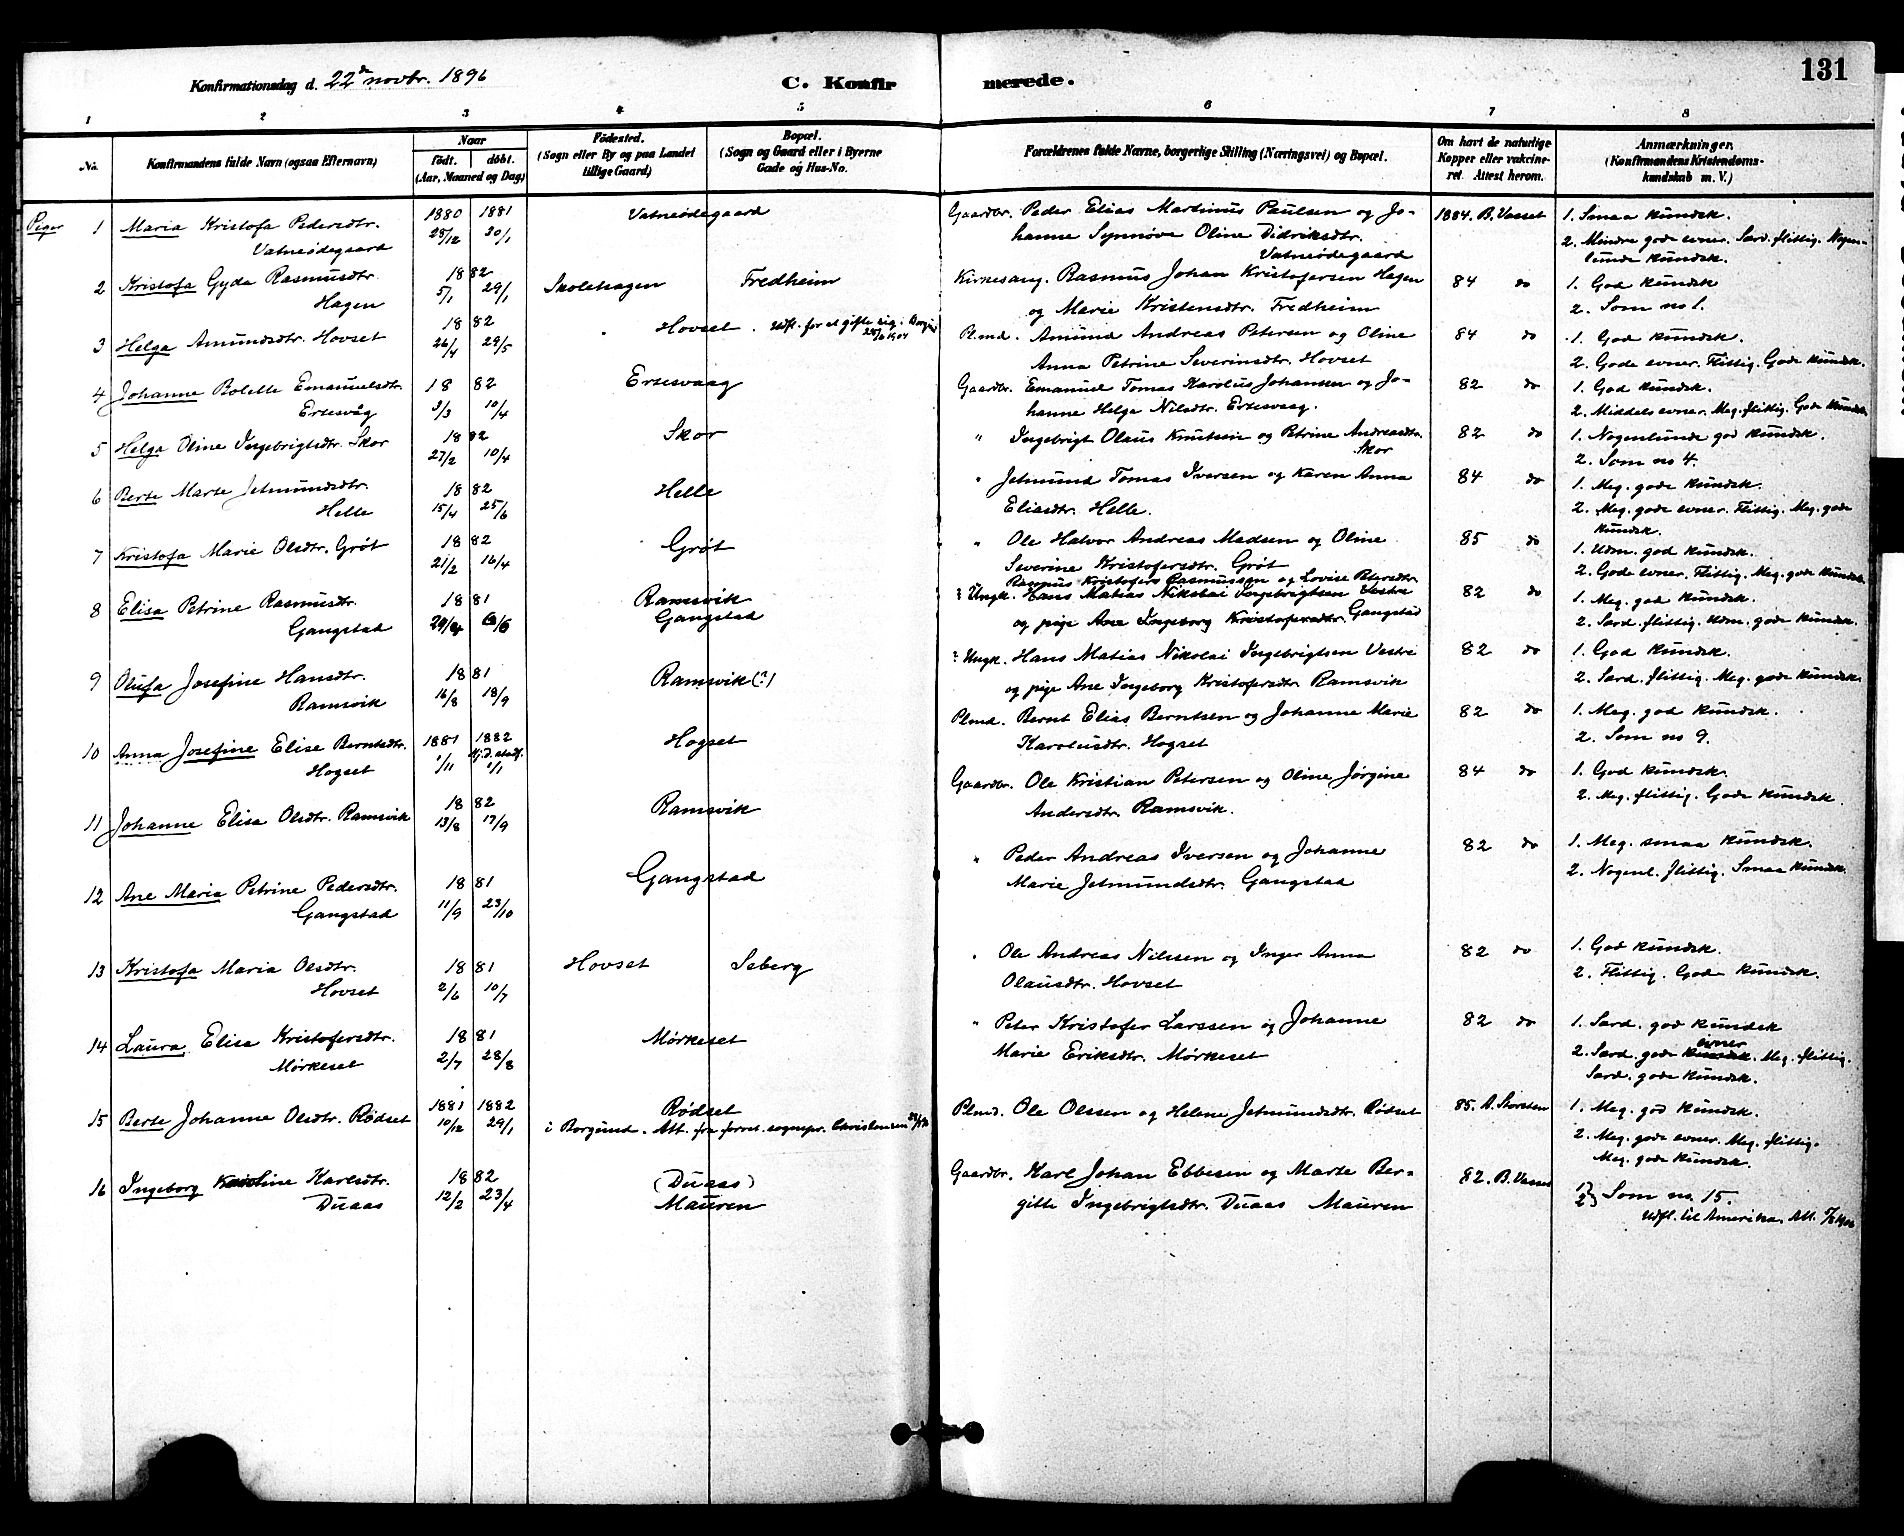 131
Konfirmationsdag d. 22de novbr. 1896
C. Konfirmerede.
1 2 3 4 5 6 7 8
No.
Konfirmandens fulde Navn (ogsaa Efternavn)
Naar
födt. döbt.
(Aar, Maaned og Dag)
Födested.
(Sogn eller By og paa Landet tillige Gaard)
Bopæl.
(Sogn og Gaard eller i Byerne Gade og Hus-No.
Forældrenes fulde Navne, borgerlige Stilling (Næringsvei) og Bopæl.
Om havt de naturlige Kopper eller vakcineret. Attest herom.
Anmærkninger.
(Konfirmandens Kristendomskundskab m. V.)
Piger
1 Maria Kristofa Pedersdtr. 1880 1881 Vatneødegaard Gaardbr. Peder Elias Martinus Paulsen og Jo- 1884. B. Vasset 1. Smaa kundsk.
Vatneødegaard 28/12 30/1 hanne Synnøve Oline Didriksdtr. 2. Mindre gode evner. Særd. flittig. Nogen-
Vatneødegaard lunde kundsk.
2 Kristofa Gyda Rasmusdtr. 1882 Skolehagen Fredheim Kirkesang. Rasmus Johan Kristofersen Hagen 84 do 1. God kundsk
Hagen 5/1 29/1 og Marie Kristensdtr. Fredheim 2. Som no 1.
3 Helga Amundsdtr. Hovset 1882 Hovset. Udfl. for at gifte sig i Borgund Plmd. Amund Andreas Petersen og Oline 84 do 1. God kundsk.
26/4 29/5 Anna Petrine Severinsdtr. Hovset 2. Gode evner. Flittig. Gode kundsk.
4 Johanne Bolette Emanuelsdtr. 1882 Ertesvaag Gaardbr. Emanuel Tomas Karolus Johansen og Jo- 82 do 1. God kundsk.
Ertesvåg 3/3 10/4 hanne Helga Nilsdtr. Ertesvaag. 2. Middels evner. Meg. flittig. Gode kundsk.
5 Helga Oline Ingebrigtsdtr. Skor 1882 Skor " Ingebrigt Olaus Knutsen og Petrine Andreasdtr. 82 do 1. Nogenlunde god kundsk.
27/2 10/4 Skor 2. Som no 4.
6 Berte Marte Jetmundsdtr. 1882 Helle " Jetmund Tomas Iversen og Karen Anna 84 do 1. Meg. gode kundsk.
Helle 15/4 25/6 Eliasdtr. Helle. 2. Meg. gode evner. Flittig. Meg. gode
kundsk.
7 Kristofa Marie Olsdtr. Grøt 1882 Grøt " Ole Halvor Andreas Madsen og Oline 85 do 1. Udm. god kundsk.
21/2 16/4 Severine Kristofersdtr. Grøt 2. Gode evner. Flittig. Meg. gode kundsk.
Rasmus Kristofers Rasmussen og Lovise Petersdtr.
8 Elisa Petrine Rasmusdtr. 1881 Ramsvik Ungk. Hans Matias Nikolai Ingebrigtsen Vestre 82 do 1. Meg. god kundsk.
Gangstad 29/4 6/6 Gangstad og pige Ane Ingeborg Kristofersdtr. Gangstad 2. Særd. flittig. Udm. gode kundsk.
9 Olufa Josefine Hansdtr. 1881 Ramsvik (?) Ungk. Hans Matias Nikolai Ingebrigtsen Vestre 82 do 1. God kundsk.
Ramsvik 16/8 18/9 og pige Ane Ingeborg Kristofersdtr. Ramsvik 2. Særd. flittig. Meg. gode kundsk.
10 Anna Josefine Elise Berntsdtr. 1881 1882 Hogset Plmd. Bernt Elias Berntsen og Johanne Marie 82 do 1. Meg. god kundsk.
Hogset 1/11 Hj.d. stadf. 1/1 Karolusdtr. Hogset 2. Som no 9.
11 Johanne Elisa Olsdtr. Ramsvik 1882 Ramsvik Gaardbr. Ole Kristian Petersen og Oline Jørgine 84 do 1. God kundsk.
13/8 17/9 Andersdtr. Ramsvik. 2. Meg. flittig. Gode kundsk.
12 Ane Maria Petrine Pedersdtr. 1881 Gangstad " Peder Andreas Iversen og Johanne 82 do 1. Meg. smaa kundsk.
Gangstad 11/9 23/10 Marie Jetmundsdtr. Gangstad 2. Nogenl. flittig. Smaa kundsk.
13 Kristofa Maria Olsdtr. 1881 Hovset Seberg " Ole Andreas Nilssen og Inger Anna 82 do 1. God kundsk.
Hovset 2/6 10/7 Olausdtr. Hovset 2. Flittig. Gode kundsk.
14 Laura Elisa Kristofersdtr. 1881 Mørkeset " Peter Kristofer Larssen og Johanne 82 do 1. Særd. god kundsk
Mørkeset 2/7 28/8 Marie Eriksdtr. Mørkeset 2. Særd. gode kundsk. evner. Meg. flittig.
Særd. gode kundsk.
15 Berte Johanne Olsdtr. Rødset 1881 1882 Rødset Plmd. Ole Olssen og Helene Jetmundsdtr. Rødset 85. A. Storsten 1. Meg. god kundsk.
10/12 29/1 i Borgund. Att. fra forret. sognepr. Christensen 2. Meg. gode evner. Meg. flittig.
Meg. gode kundsk.
16 Ingeborg Karoline Karlsdtr. 1882 (Duaas) Gaardbr. Karl Johan Ebbesen og Marte Ber- 82. B. Vasset 1. 2. } Som no. 15.
Duaas 12/2 23/4 Mauren gitte Ingebrigtsdtr. Duaas Mauren Udfl. til Amerika. Att.